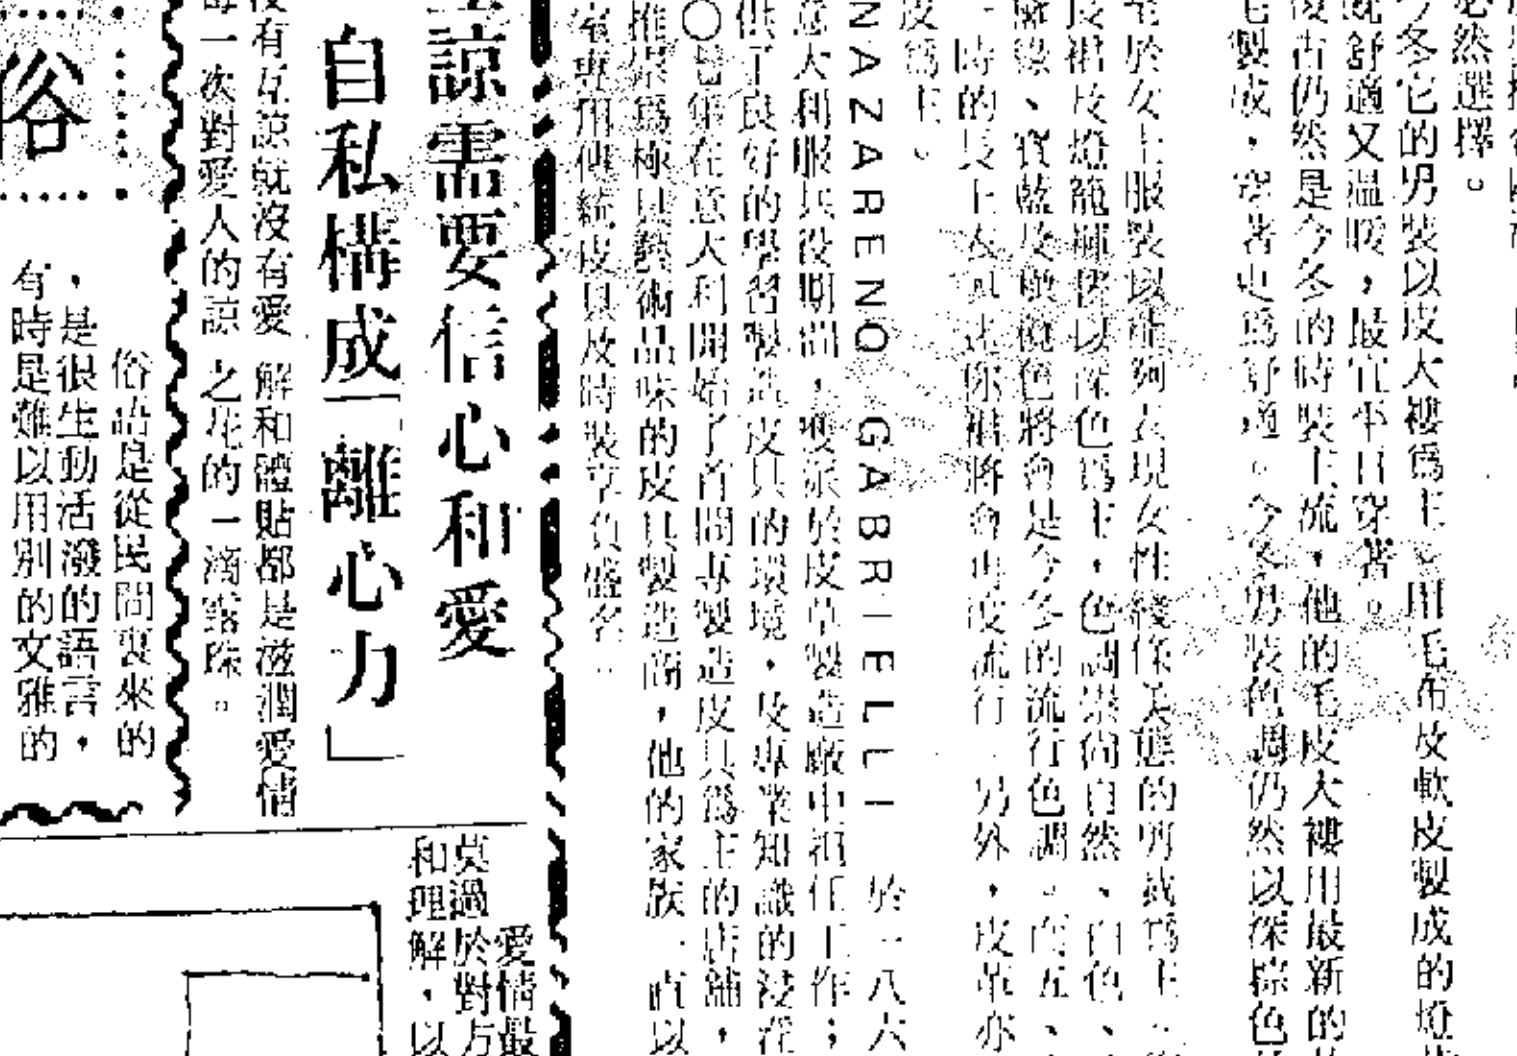 必然選擇。
今冬它的男裝以皮大褸爲主。用毛布及軟皮製成的燈
既舒適又溫暖，最宜平日穿著。
沒有仍然是今冬的時裝主流，他的毛皮大褸用最新的
毛製成，穿著更爲舒適。今冬男裝色調仍然以深棕色
至於女士服裝以能夠表現女性綫條美態的剪裁爲主
長裙及燈籠褲皆以深色爲主，色調崇尚自然、白色、
寶藍及橄欖色將會是今冬的流行色調。而五、
時的長上衣或迷你裙將會再度流行 另外，皮革亦
皮爲主。
NAZARENO GABRIELLI 於一八六
意大利服兵役期間，獲派於皮草製造廠中担任工作；
供了良好的學習製造皮具的環境，及專業知識的浸在
〇七年在意大利開始了首間專製造皮具爲主的店舖，
推崇爲極具藝術品味的皮具製造商，他的家族一直以
室專用傳統皮具及時裝享負盛名。
諒需要信心和愛
自私構成「離心力」
沒有互諒就沒有愛 解和體貼都是滋潤愛情
每一次對愛人的諒 之花的一滴露珠。
愛情最
莫過於對方
和理解，以
俗
俗語是從民間裏來的
，是很生動活潑的語言，
有時是難以用別的文雅的